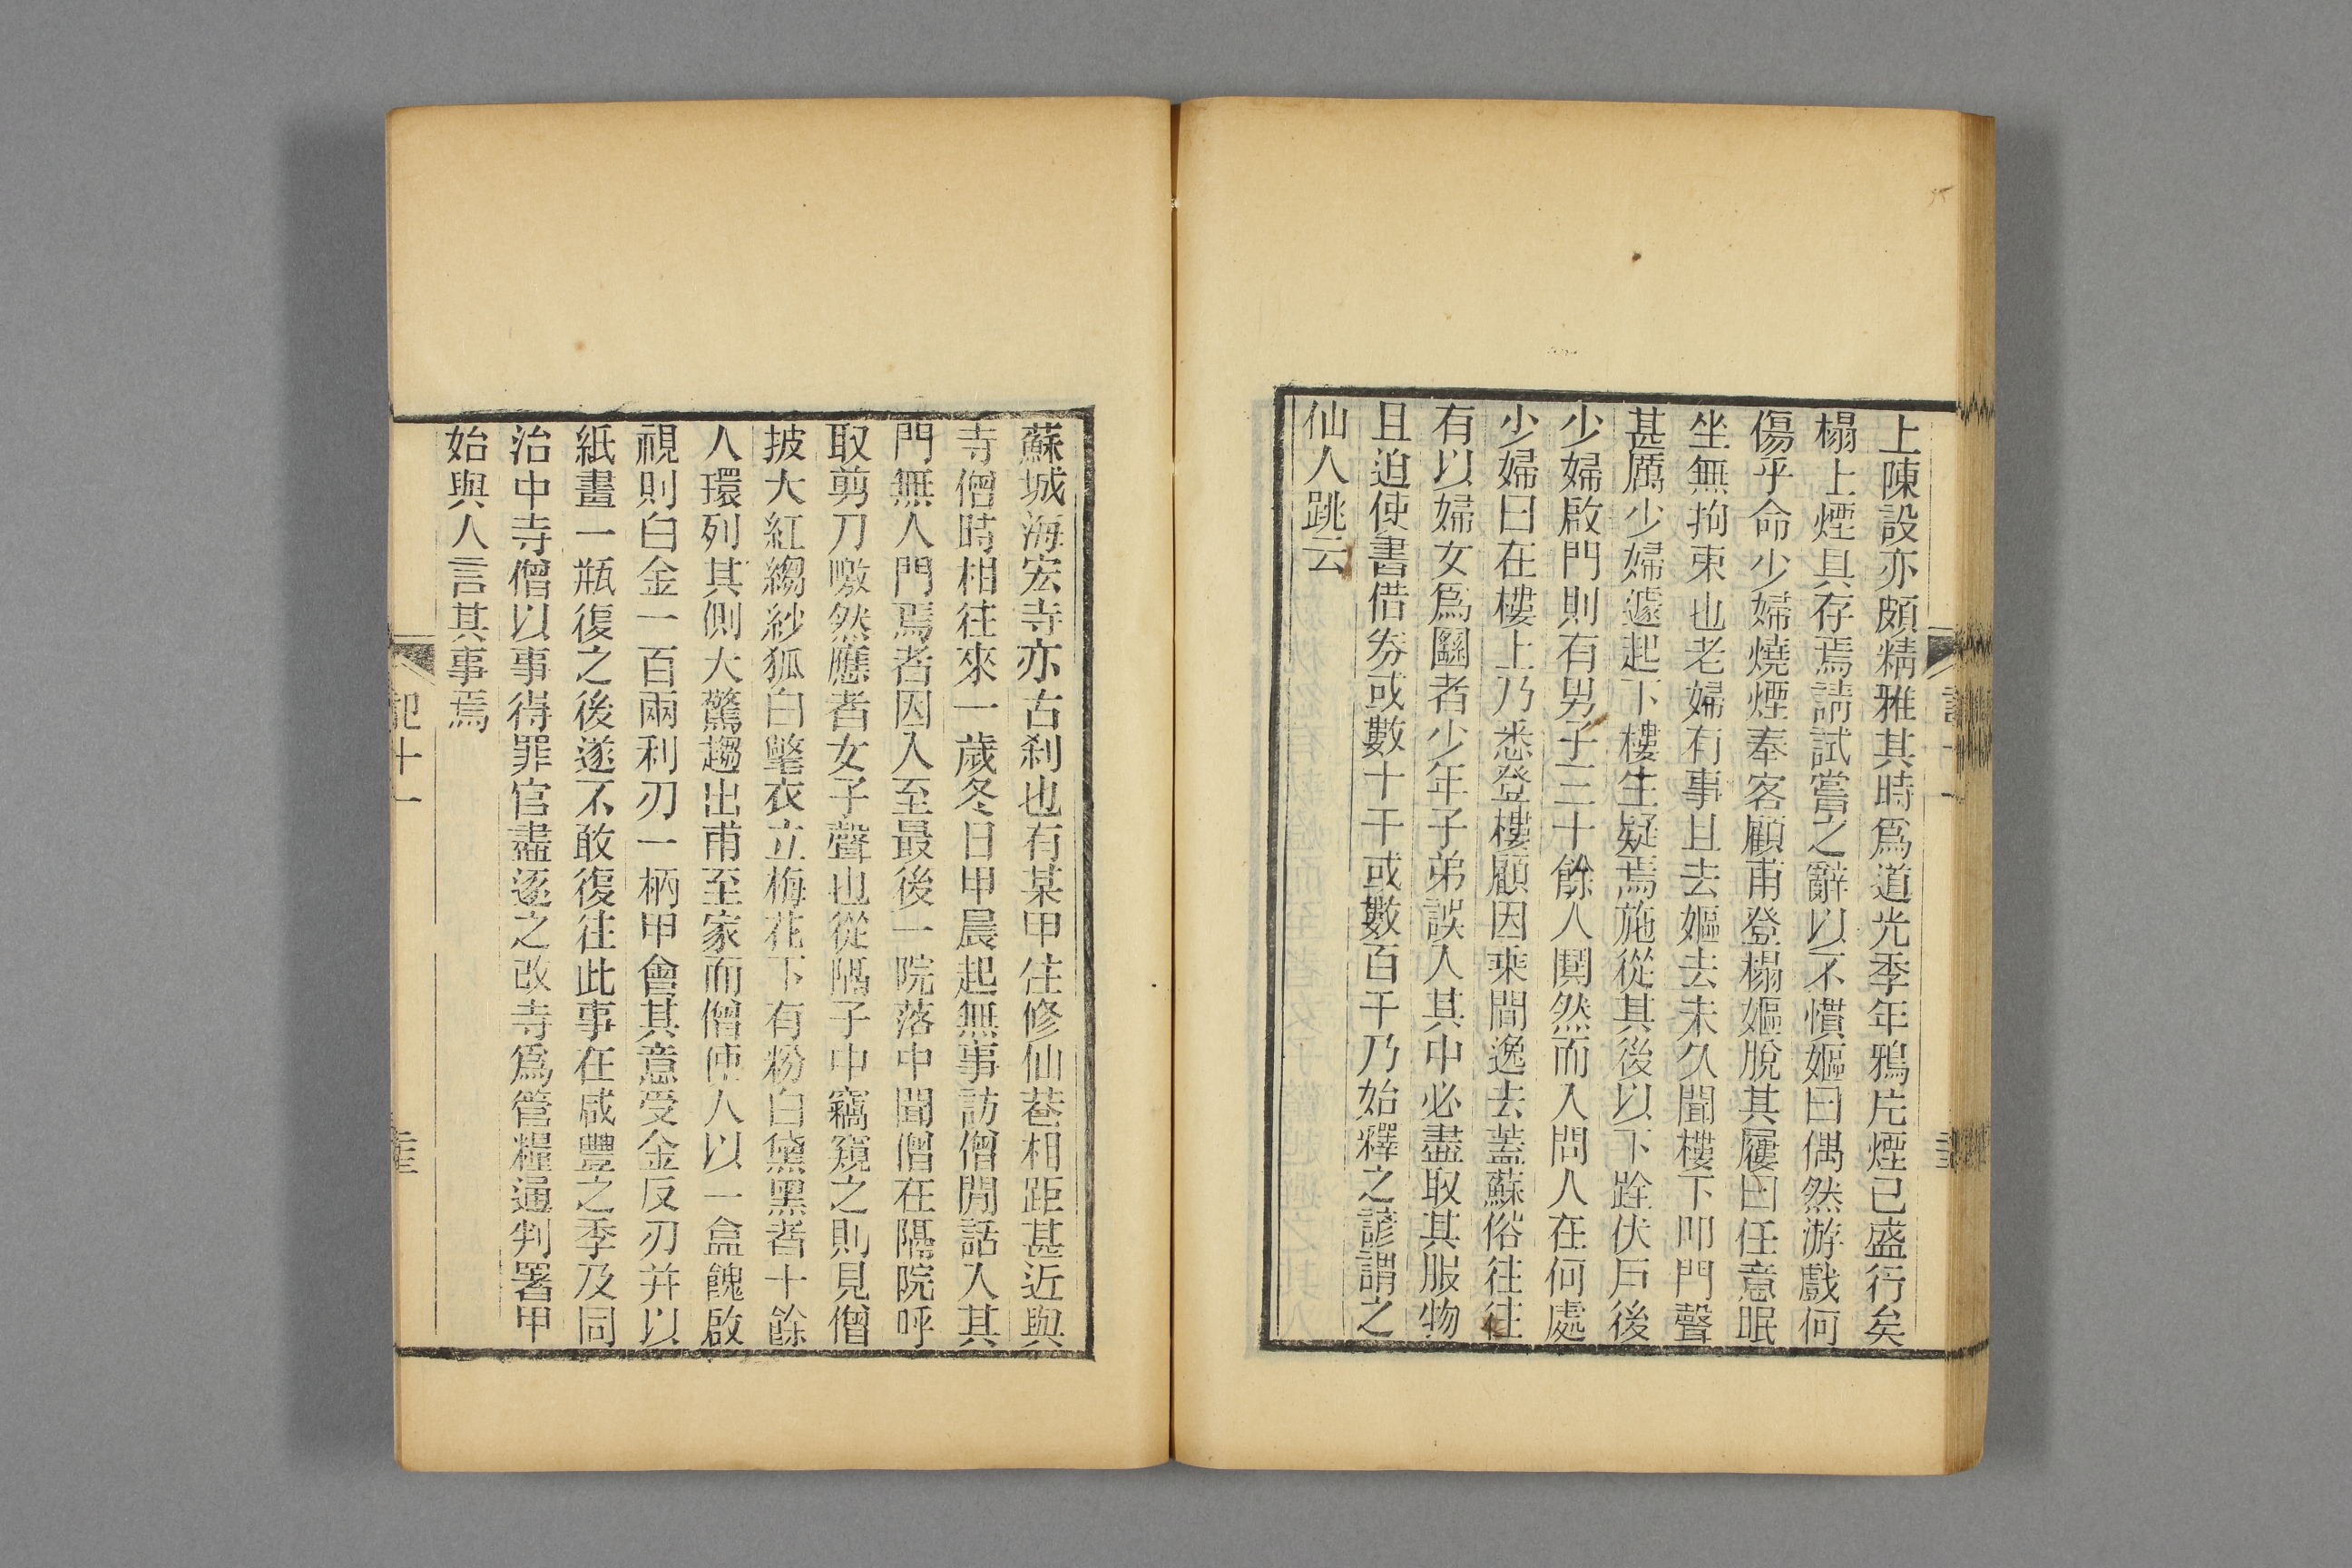 上陳設亦頗精雅其時爲道光季年鴉片煙已盛行矣
榻上煙具存焉請試嘗之辭以不慣嫗曰偶然游戲何
傷乎命少婦燒煙奉客顧甫登榻嫗脫其屨曰任意眠
坐無拘束也老婦有事且去嫗去未久聞樓下叩門聲
甚厲少婦遽起下樓生疑焉施從其後以下跧伏戶後
少婦啟門則有男子二十餘人鬨然而入問人在何處
少婦曰在樓上乃悉登樓顧因乘間逸去蓋蘇俗往往
有以婦女爲圝者少年子弟誤入其中必盡取其服物
且迫使書借券或數十千或數百千乃始釋之諺謂之
仙人跳云
蘇城海宏寺亦古刹也有某甲住修仙巷相距甚近與
寺僧時相往來一歲冬日甲晨起無事訪僧閒話入其
門無人門焉者因入至最後一院落中聞僧在隔院呼
取剪刀噭然應者女子聲也從隔子中竊窺之則見僧
披大紅縐紗狐白氅衣立梅花下有粉白黛黑者十餘
人環列其側大驚趨出甫至家而僧使人以一盒餽啟
視則白金一百兩利刃一柄甲會其意受金反刃并以
紙畫一瓶復之後遂不敢復往此事在咸豐之季及同
治中寺僧以事得罪官盡逐之改寺爲管糧通判署甲
始與人言其事焉
記十一